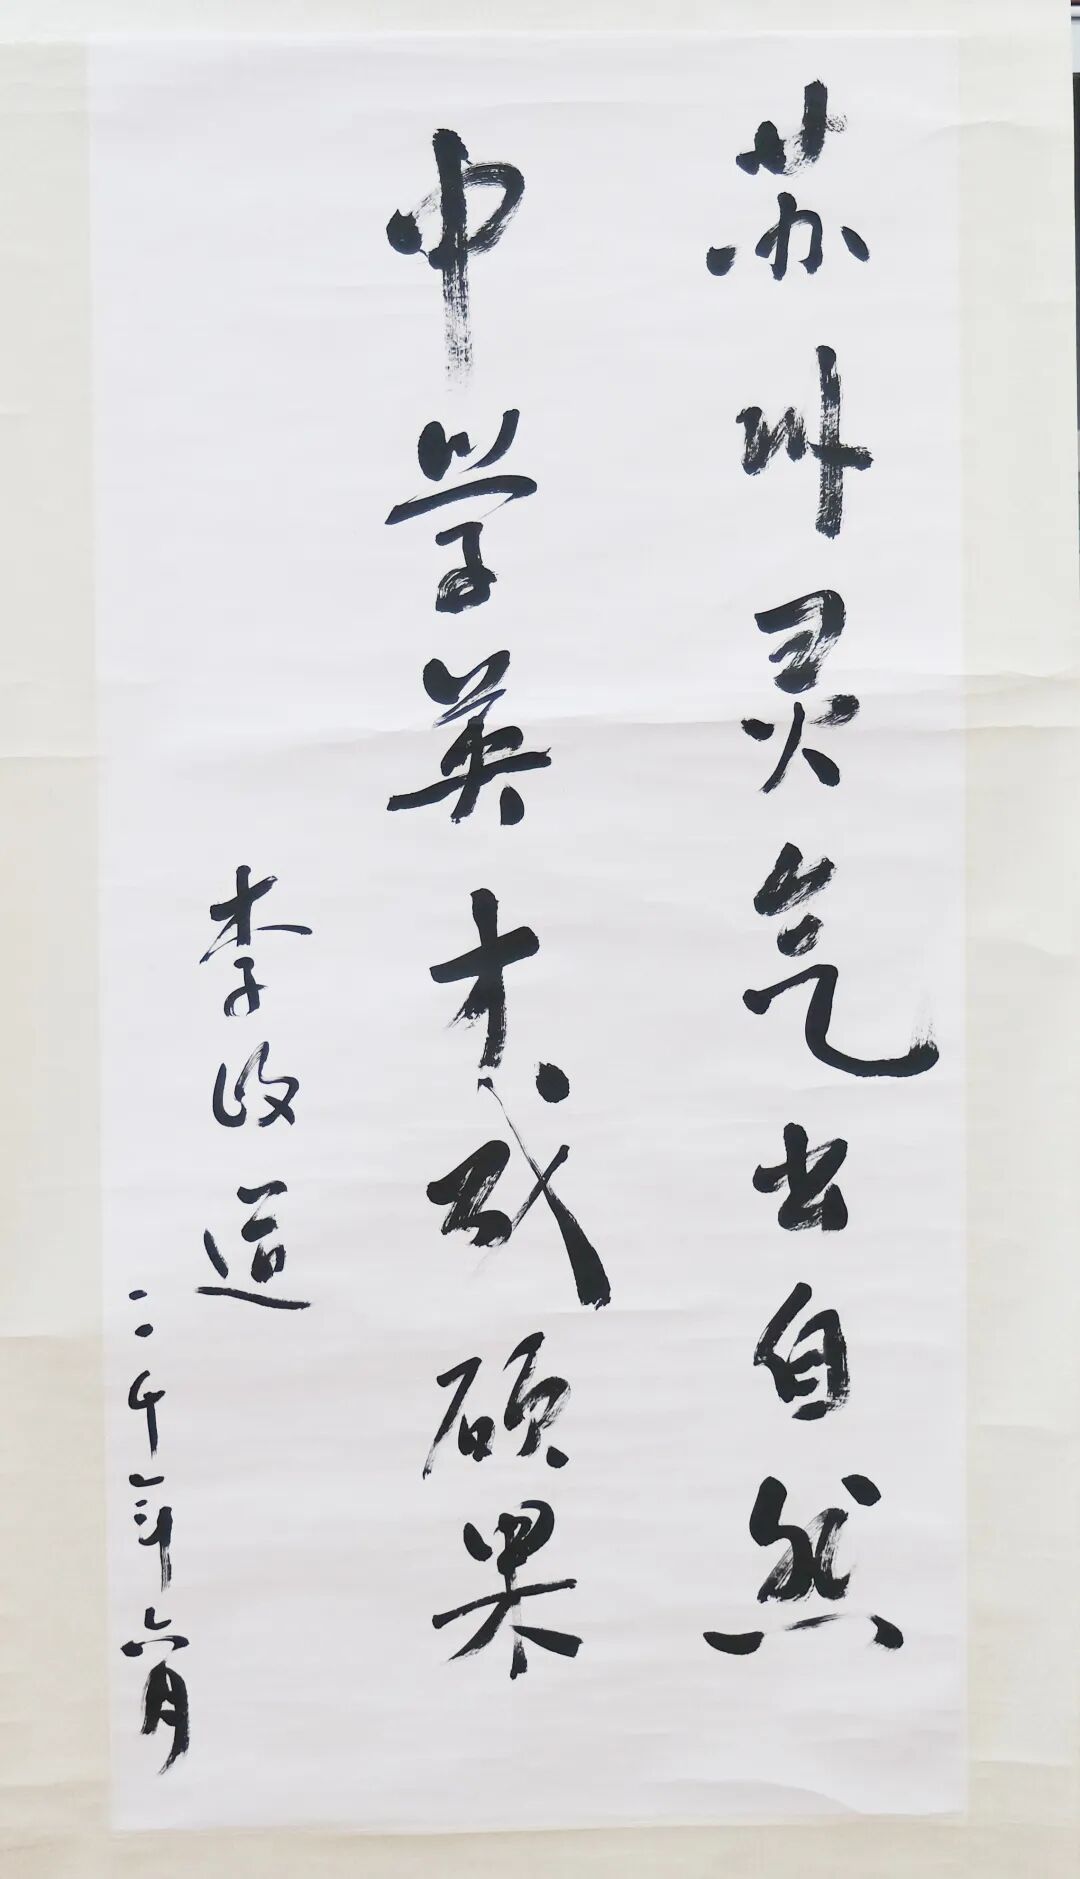 苏州灵气出自然
中学英才成硕果
李政道
二〇〇三年六月